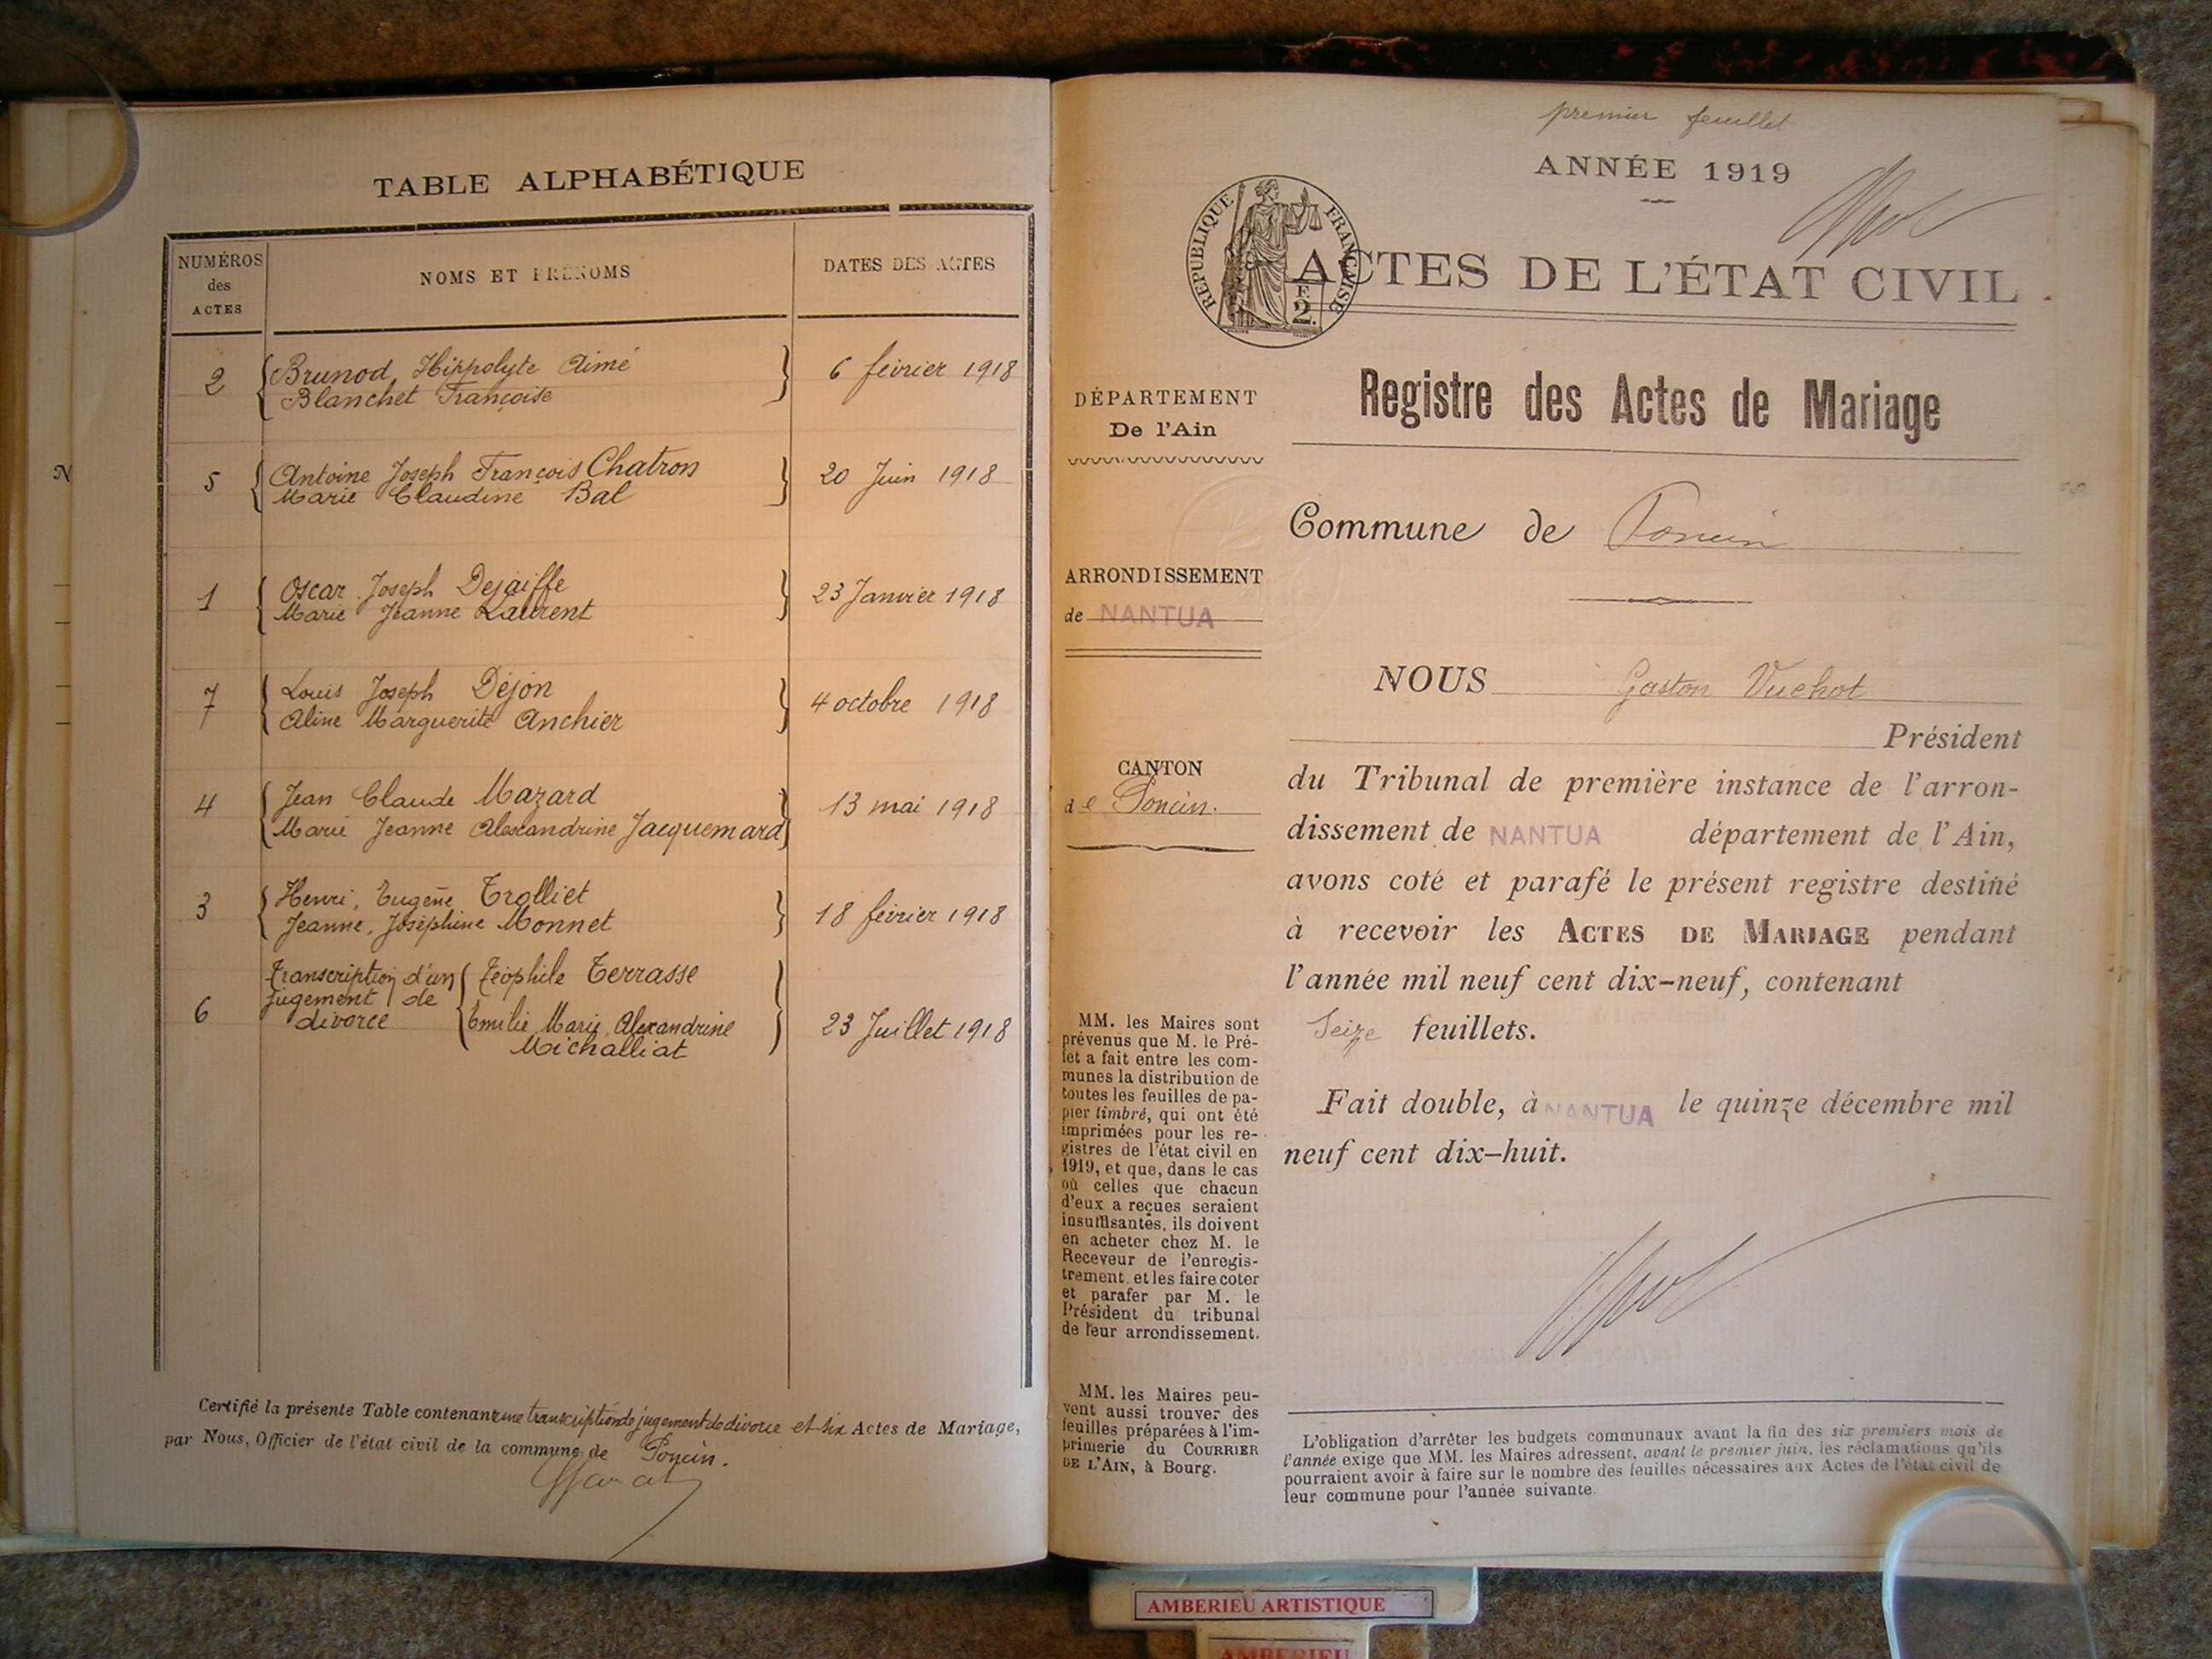 TABLE ALPHABÉTIQUE
NUMÉROS des ACTES
NOMS ET PRÉNOMS
DATES DES ACTES
2 Brunod, Hippolyte Aimé 6 février 1918
Blanchet Françoise
5 Antoine Joseph François Chatron 20 Juin 1918
Marie Claudine Bal
1 Oscar Joseph Dejaiffe 23 Janvier 1918
Marie Jeanne Laurent
7 Louis Joseph Déjon 4 octobre 1918
Aline Marguerite Anchier
4 Jean Claude Mazard 13 mai 1918
Marie Jeanne Alexandrine Jacquemard
3 Henri, Eugène Trolliet 18 février 1918
Jeanne, Joséphine Monnet
6 Transcription d'un jugement de divorce Téophile Terrasse 23 Juillet 1918
Emilie Marie Alexandrine
Michalliat
Certifié la présente Table contenant une transcription de jugement de divorce et six Actes de Mariage,
par Nous, Officier de l'état civil de la commune de Poncin.
N
premier feuillet
ANNÉE 1919
REPUBLIQUE FRANÇAISE
2
ACTES DE L'ÉTAT CIVIL
Registre des Actes de Mariage
DÉPARTEMENT
De l'Ain
Commune de Poncin
ARRONDISSEMENT
de NANTUA
CANTON
de Poncin.
NOUS Gaston Vuchot
Président
du Tribunal de première instance de l'arron-
dissement de NANTUA département de l'Ain,
avons coté et parafé le présent registre destiné
à recevoir les ACTES DE MARIAGE pendant
l'année mil neuf cent dix-neuf, contenant
Seize feuillets.
Fait double, à NANTUA le quinze décembre mil
neuf cent dix-huit.
MM. les Maires sont
prévenus que M. le Pré-
fet a fait entre les com-
munes la distribution de
toutes les feuilles de pa-
pier timbré, qui ont été
imprimées pour les re-
gistres de l'état civil en
1919, et que, dans le cas
où celles que chacun
d'eux a reçues seraient
insuffisantes, ils doivent
en acheter chez M. le
Receveur de l'enregis-
trement, et les faire coter
et parafer par M. le
Président du tribunal
de leur arrondissement.
MM. les Maires peu-
vent aussi trouver des
feuilles préparées à l'im-
primerie du COURRIER
DE L'AIN, à Bourg.
L'obligation d'arrêter les budgets communaux avant la fin des six premiers mois de
l'année exige que MM. les Maires adressent, avant le premier juin, les réclamations qu'ils
pourraient avoir à faire sur le nombre des feuilles nécessaires aux Actes de l'état civil de
leur commune pour l'année suivante.
AMBERIEU ARTISTIQUE
AMBERIEU